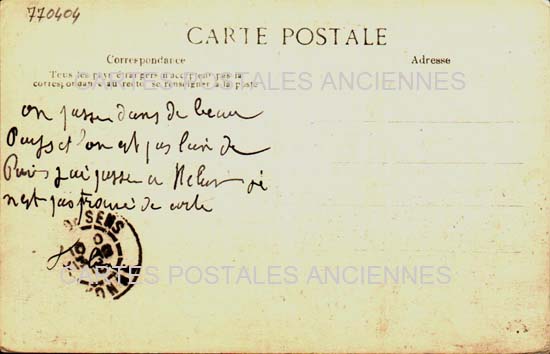 770404
CARTE POSTALE
Correspondance
Adresse
Tous les pays étrangers n'acceptent pas la
correspondance au recto, se renseigner à la poste
CARTES POSTALES ANCIENNES
on passe dans de beau
Pays et l'on est pas loin de
Paris j'ai passer a Melun je
n'est pas trouvé de carte
SENS
CARTES POSTALES ANCIENNES